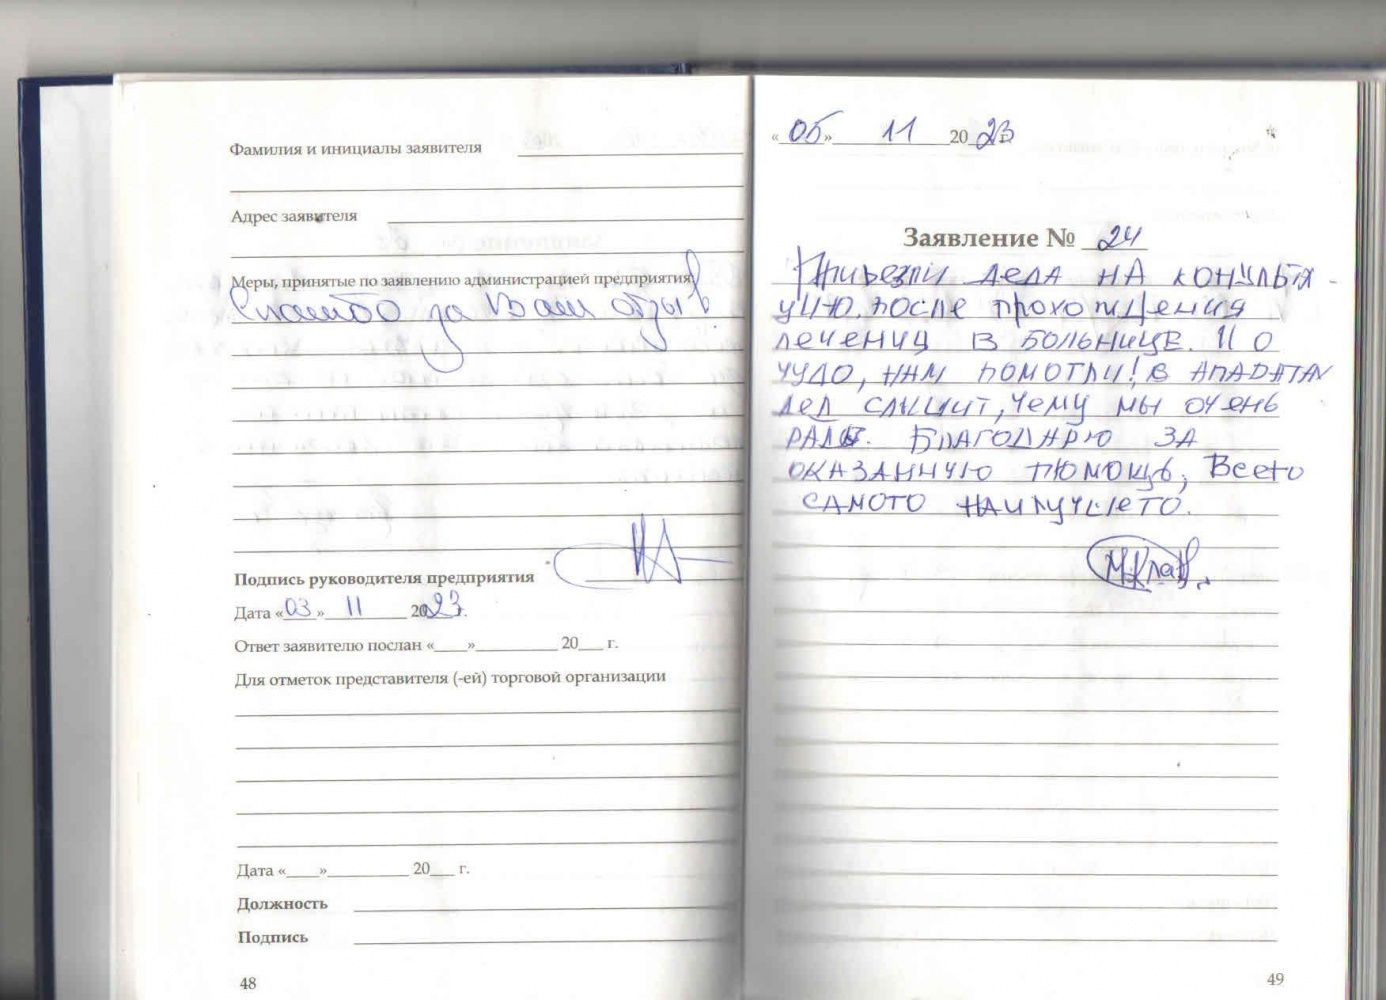 Фамилия и инициалы заявителя
Адрес заявителя
Меры, принятые по заявлению администрацией предприятия
Спасибо за Ваш отзыв!
Подпись руководителя предприятия
Дата «03» 11 2023г.
Ответ заявителю послан «____»__________ 20___ г.
Для отметок представителя (-ей) торговой организации
Дата «____»__________ 20___ г.
Должность
Подпись
48
«05» 11 2023
Заявление № 24
Привезли деда на консульта-
цию. после прохождения
лечения в больнице. И о
чудо, нам помогли! в аппаратах
дед слышит, чему мы очень
рады. Благодарю за
оказанную помощь, Всего
самого наилучшего.
49